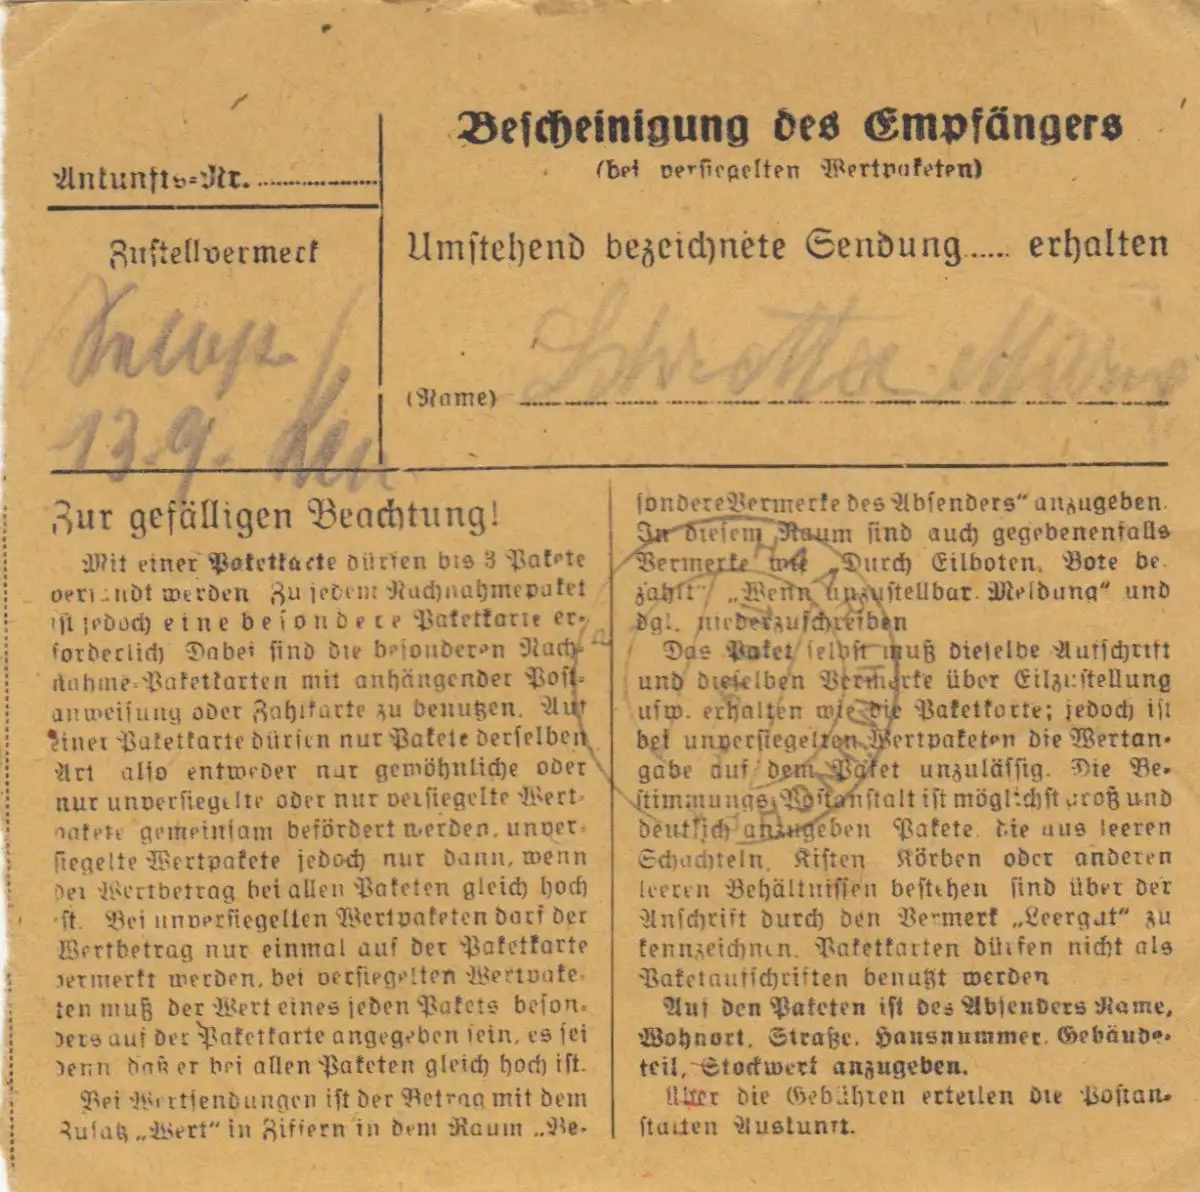 Bescheinigung des Empfängers
(bei versiegelten Wertpaketen)
Ankunfts=Nr. ............
Zustellvermerk
Umstehend bezeichnete Sendung..... erhalten
13.9.
(Name)
Zur gefälligen Beachtung!
Mit einer Paketkarte dürfen bis 3 Pakete
versandt werden Zu jedem Nachnahmepaket
ist jedoch eine besondere Paketkarte er-
forderlich Dabei sind die besonderen Nach-
nahme=Paketkarten mit anhängender Post-
anweisung oder Zahlkarte zu benutzen. Auf
einer Paketkarte dürfen nur Pakete derselben
Art also entweder nur gewöhnliche oder
nur unversiegelte oder nur versiegelte Wert-
pakete gemeinsam befördert werden, unver-
siegelte Wertpakete jedoch nur dann, wenn
der Wertbetrag bei allen Paketen gleich hoch
ist. Bei unversiegelten Wertpaketen darf der
Wertbetrag nur einmal auf der Paketkarte
vermerkt werden, bei versiegelten Wertpake-
ten muß der Wert eines jeden Pakets beson-
ders auf der Paketkarte angegeben sein, es sei
denn daß er bei allen Paketen gleich hoch ist.
Bei Wertsendungen ist der Betrag mit dem
Zusatz „Wert“ in Ziffern in dem Raum „Be-
sondere Vermerke des Absenders“ anzugeben.
In diesem Raum sind auch gegebenenfalls
Vermerke wie „Durch Eilboten, Bote be-
zahlt“ „Wenn unzustellbar. Meldung“ und
dgl. niederzuschreiben
Das Paket selbst muß dieselbe Aufschrift
und dieselben Vermerke über Eilzustellung
usw. erhalten wie die Paketkarte; jedoch ist
bei unversiegelten Wertpaketen die Wertan-
gabe auf dem Paket unzulässig. Die Be-
stimmungs-Postanstalt ist möglichst groß und
deutlich anzugeben Pakete, die aus leeren
Schachteln, Kisten Körben oder anderen
leeren Behältnissen bestehen sind über der
Anschrift durch den Vermerk „Leergut“ zu
kennzeichnen. Paketkarten dürfen nicht als
Paketaufschriften benutzt werden
Auf den Paketen ist des Absenders Name,
Wohnort, Straße, Hausnummer, Gebäude-
teil, Stockwerk anzugeben.
Über die Gebühren erteilen die Postan-
stalten Auskunft.